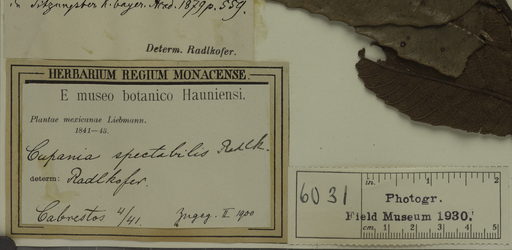 in Sitzungsber. k. bayer. Akad. 1879 p. 559.
Determ. Radlkofer.
HERBARIUM REGIUM MONACENSE.
E museo botanico Hauniensi.
Plantae mexicanae Liebmann.
1841—43.
Cupania spectabilis Radlk.
determ: Radlkofer.
Cabrestos 4/41. Zugeg. II 1900
6031
in. 1 2
Photogr.
Field Museum 1930.
cm. 1 2 3 4 5